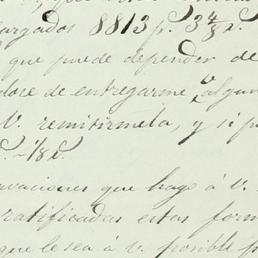 cargados 8813 p. 3 4/8 r.
que puede depender de
dose de entregarme, algun
V. remitirmela, y si p
vaciones que hago á V.
ratificadas estas form
que le sea á V. posible p